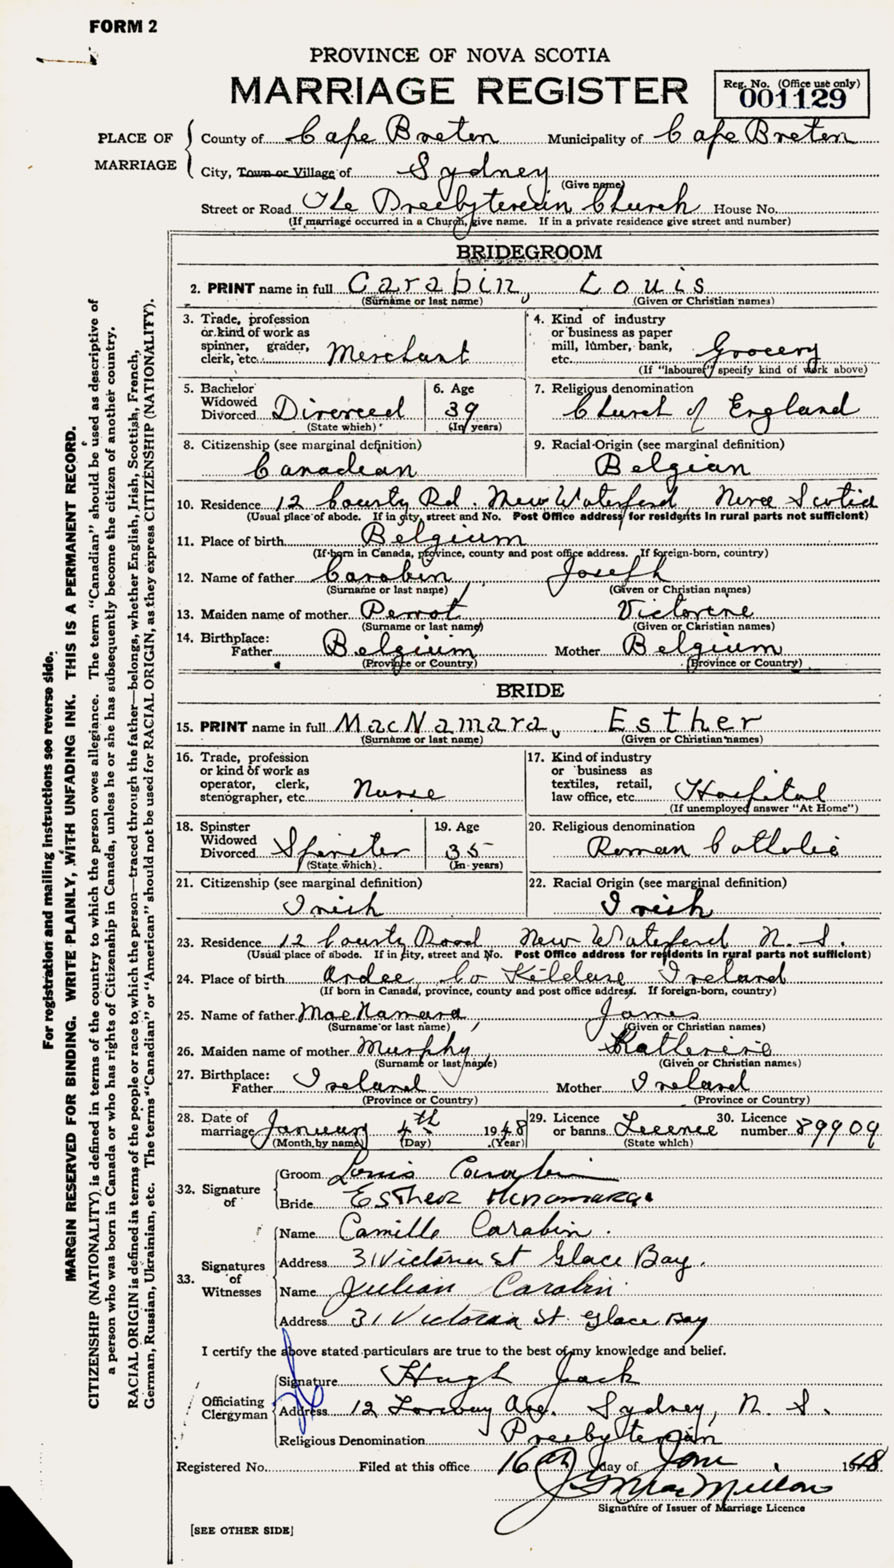 FORM 2
PROVINCE OF NOVA SCOTIA
MARRIAGE REGISTER
Reg. No. (Office use only)
001129
PLACE OF MARRIAGE
County of Cape Breton Municipality of Cape Breton
City, Town or Village of Sydney
(Give name)
Street or Road The Presbyterian Church House No.
(If marriage occurred in a Church, give name. If in a private residence give street and number)
BRIDEGROOM
2. PRINT name in full Carabin, Louis
(Surname or last name) (Given or Christian names)
3. Trade, profession or kind of work as spinner, grader, clerk, etc. Merchant
4. Kind of industry or business as paper mill, lumber, bank, etc. Grocery
(If "labourer" specify kind of work above)
5. Bachelor Widowed Divorced Divorced
(State which)
6. Age 39
(In years)
7. Religious denomination Church of England
8. Citizenship (see marginal definition) Canadian
9. Racial Origin (see marginal definition) Belgian
10. Residence 12 County Rd. New Waterford Nova Scotia
(Usual place of abode. If in city, street and No. Post Office address for residents in rural parts not sufficient)
11. Place of birth Belgium
(If born in Canada, province, county and post office address. If foreign-born, country)
12. Name of father Carabin, Joseph
(Surname or last name) (Given or Christian names)
13. Maiden name of mother Perrot Victorine
(Surname or last name) (Given or Christian names)
14. Birthplace:
Father Belgium Mother Belgium
(Province or Country) (Province or Country)
BRIDE
15. PRINT name in full MacNamara, Esther
(Surname or last name) (Given or Christian names)
16. Trade, profession or kind of work as operator, clerk, stenographer, etc. Nurse
17. Kind of industry or business as textiles, retail, law office, etc. Hospital
(If unemployed answer "At Home")
18. Spinster Widowed Divorced Spinster
(State which)
19. Age 35
(In years)
20. Religious denomination Roman Catholic
21. Citizenship (see marginal definition) Irish
22. Racial Origin (see marginal definition) Irish
23. Residence 12 County Road New Waterford N. S.
(Usual place of abode. If in city, street and No. Post Office address for residents in rural parts not sufficient)
24. Place of birth Ardee, Co Kildare Ireland
(If born in Canada, province, county and post office address. If foreign-born, country)
25. Name of father MacNamara, James
(Surname or last name) (Given or Christian names)
26. Maiden name of mother Murphy Katherine
(Surname or last name) (Given or Christian names)
27. Birthplace:
Father Ireland Mother Ireland
(Province or Country) (Province or Country)
28. Date of marriage January 4th 1948
(Month by name) (Day) (Year)
29. Licence or banns Licence
(State which)
30. Licence number 89909
32. Signature of
Groom Louis Carabin
Bride Esther
33. Signatures of Witnesses
Name Camille Carabin.
Address 31 Victoria St Glace Bay.
Name Julian Carabin
Address 31 Victoria St. Glace Bay
I certify the above stated particulars are true to the best of my knowledge and belief.
Officiating Clergyman
Signature Hugh Jack
Address 12 Ave. Sydney, N. S.
Religious Denomination Presbyterian
Registered No. Filed at this office 16th day of Jan 1948
J. MacMillan
Signature of Issuer of Marriage Licence
[SEE OTHER SIDE]
For registration and mailing instructions see reverse side.
MARGIN RESERVED FOR BINDING. WRITE PLAINLY, WITH UNFADING INK. THIS IS A PERMANENT RECORD.
CITIZENSHIP (NATIONALITY) is defined in terms of the country to which the person owes allegiance. The term "Canadian" should be used as descriptive of
a person who was born in Canada or who has rights of Citizenship in Canada, unless he or she has subsequently become the citizen of another country.
RACIAL ORIGIN is defined in terms of the people or race to which the person—traced through the father—belongs, whether English, Irish, Scottish, French,
German, Russian, Ukrainian, etc. The terms "Canadian" or "American" should not be used for RACIAL ORIGIN, as they express CITIZENSHIP (NATIONALITY).